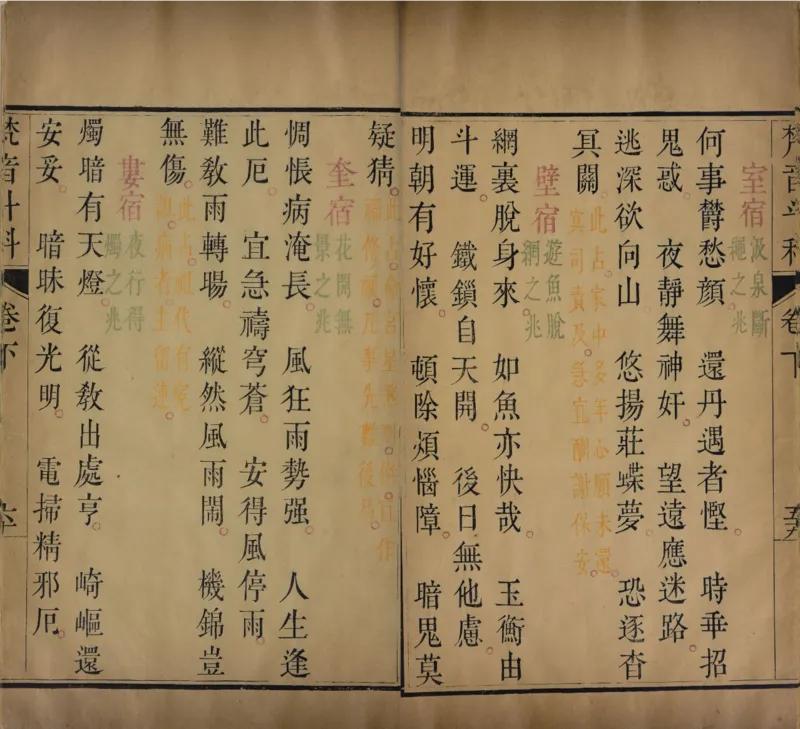 梵音斗科 卷下
室宿 汲泉斷
綆之兆
何事鬱愁顏。還丹遇者慳。時乖招
鬼惑。夜靜舞神奸。望遠應迷路。
逃深欲向山。悠揚莊蝶夢。恐逐杳
冥關。此占家中多年心願未還。
冥司責及。急宜酬謝保安。
壁宿 遊魚脫
網之兆
網裏脫身來。如魚亦快哉。玉衡由
斗運。鐵鎖自天開。後日無他慮。
明朝有好懷。頓除煩惱障。暗鬼莫
疑猜。此占命宮星辰
福修禳厄事先難後易。
奎宿 花開無
景之兆
惆悵病淹長。風狂雨勢强。人生逢
此厄。宜急禱穹蒼。安得風停雨。
難教雨轉暘。縱然風雨鬧。機錦豈
無傷。此占祖代有冤
親。病者主留連。
婁宿 夜行得
燭之兆
燭暗有天燈。從教出處亨。崎嶇還
安妥。暗昧復光明。電掃精邪厄。
梵音斗科 卷下